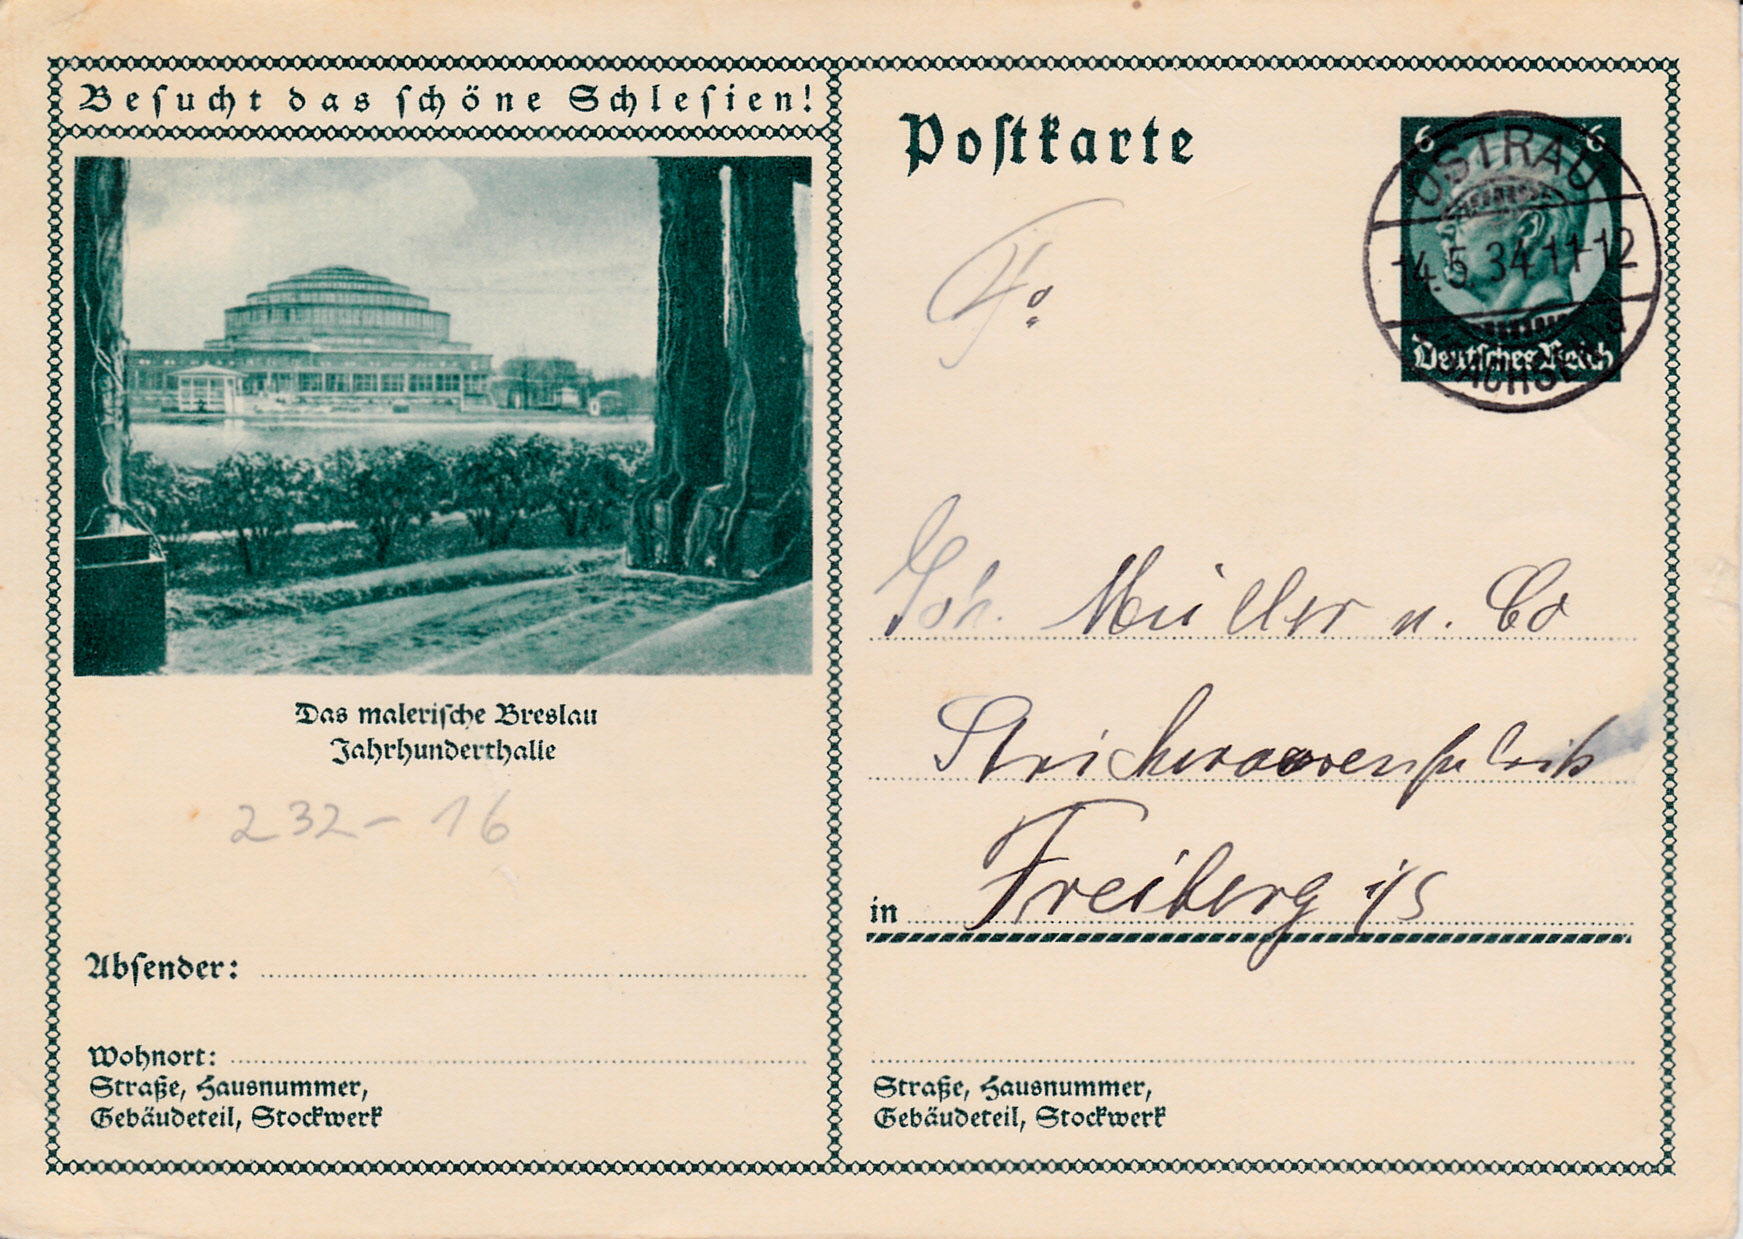 Besucht das schöne Schlesien!
Das malerische Breslau
Jahrhunderthalle
232-16
Absender:
Wohnort:
Straße, Hausnummer,
Gebäudeteil, Stockwerk
Postkarte
6 6
OSTRAU
14.5.34.11-12
SACHSEN
Deutsches Reich
Fa
Joh. Müller u. Co
Strickwarenfabrik
in Freiberg i/S
Straße, Hausnummer,
Gebäudeteil, Stockwerk